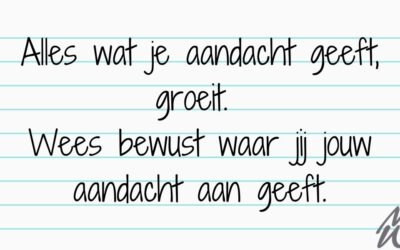 Alles wat je aandacht geeft,
groeit.
Wees bewust waar jij jouw
aandacht aan geeft.